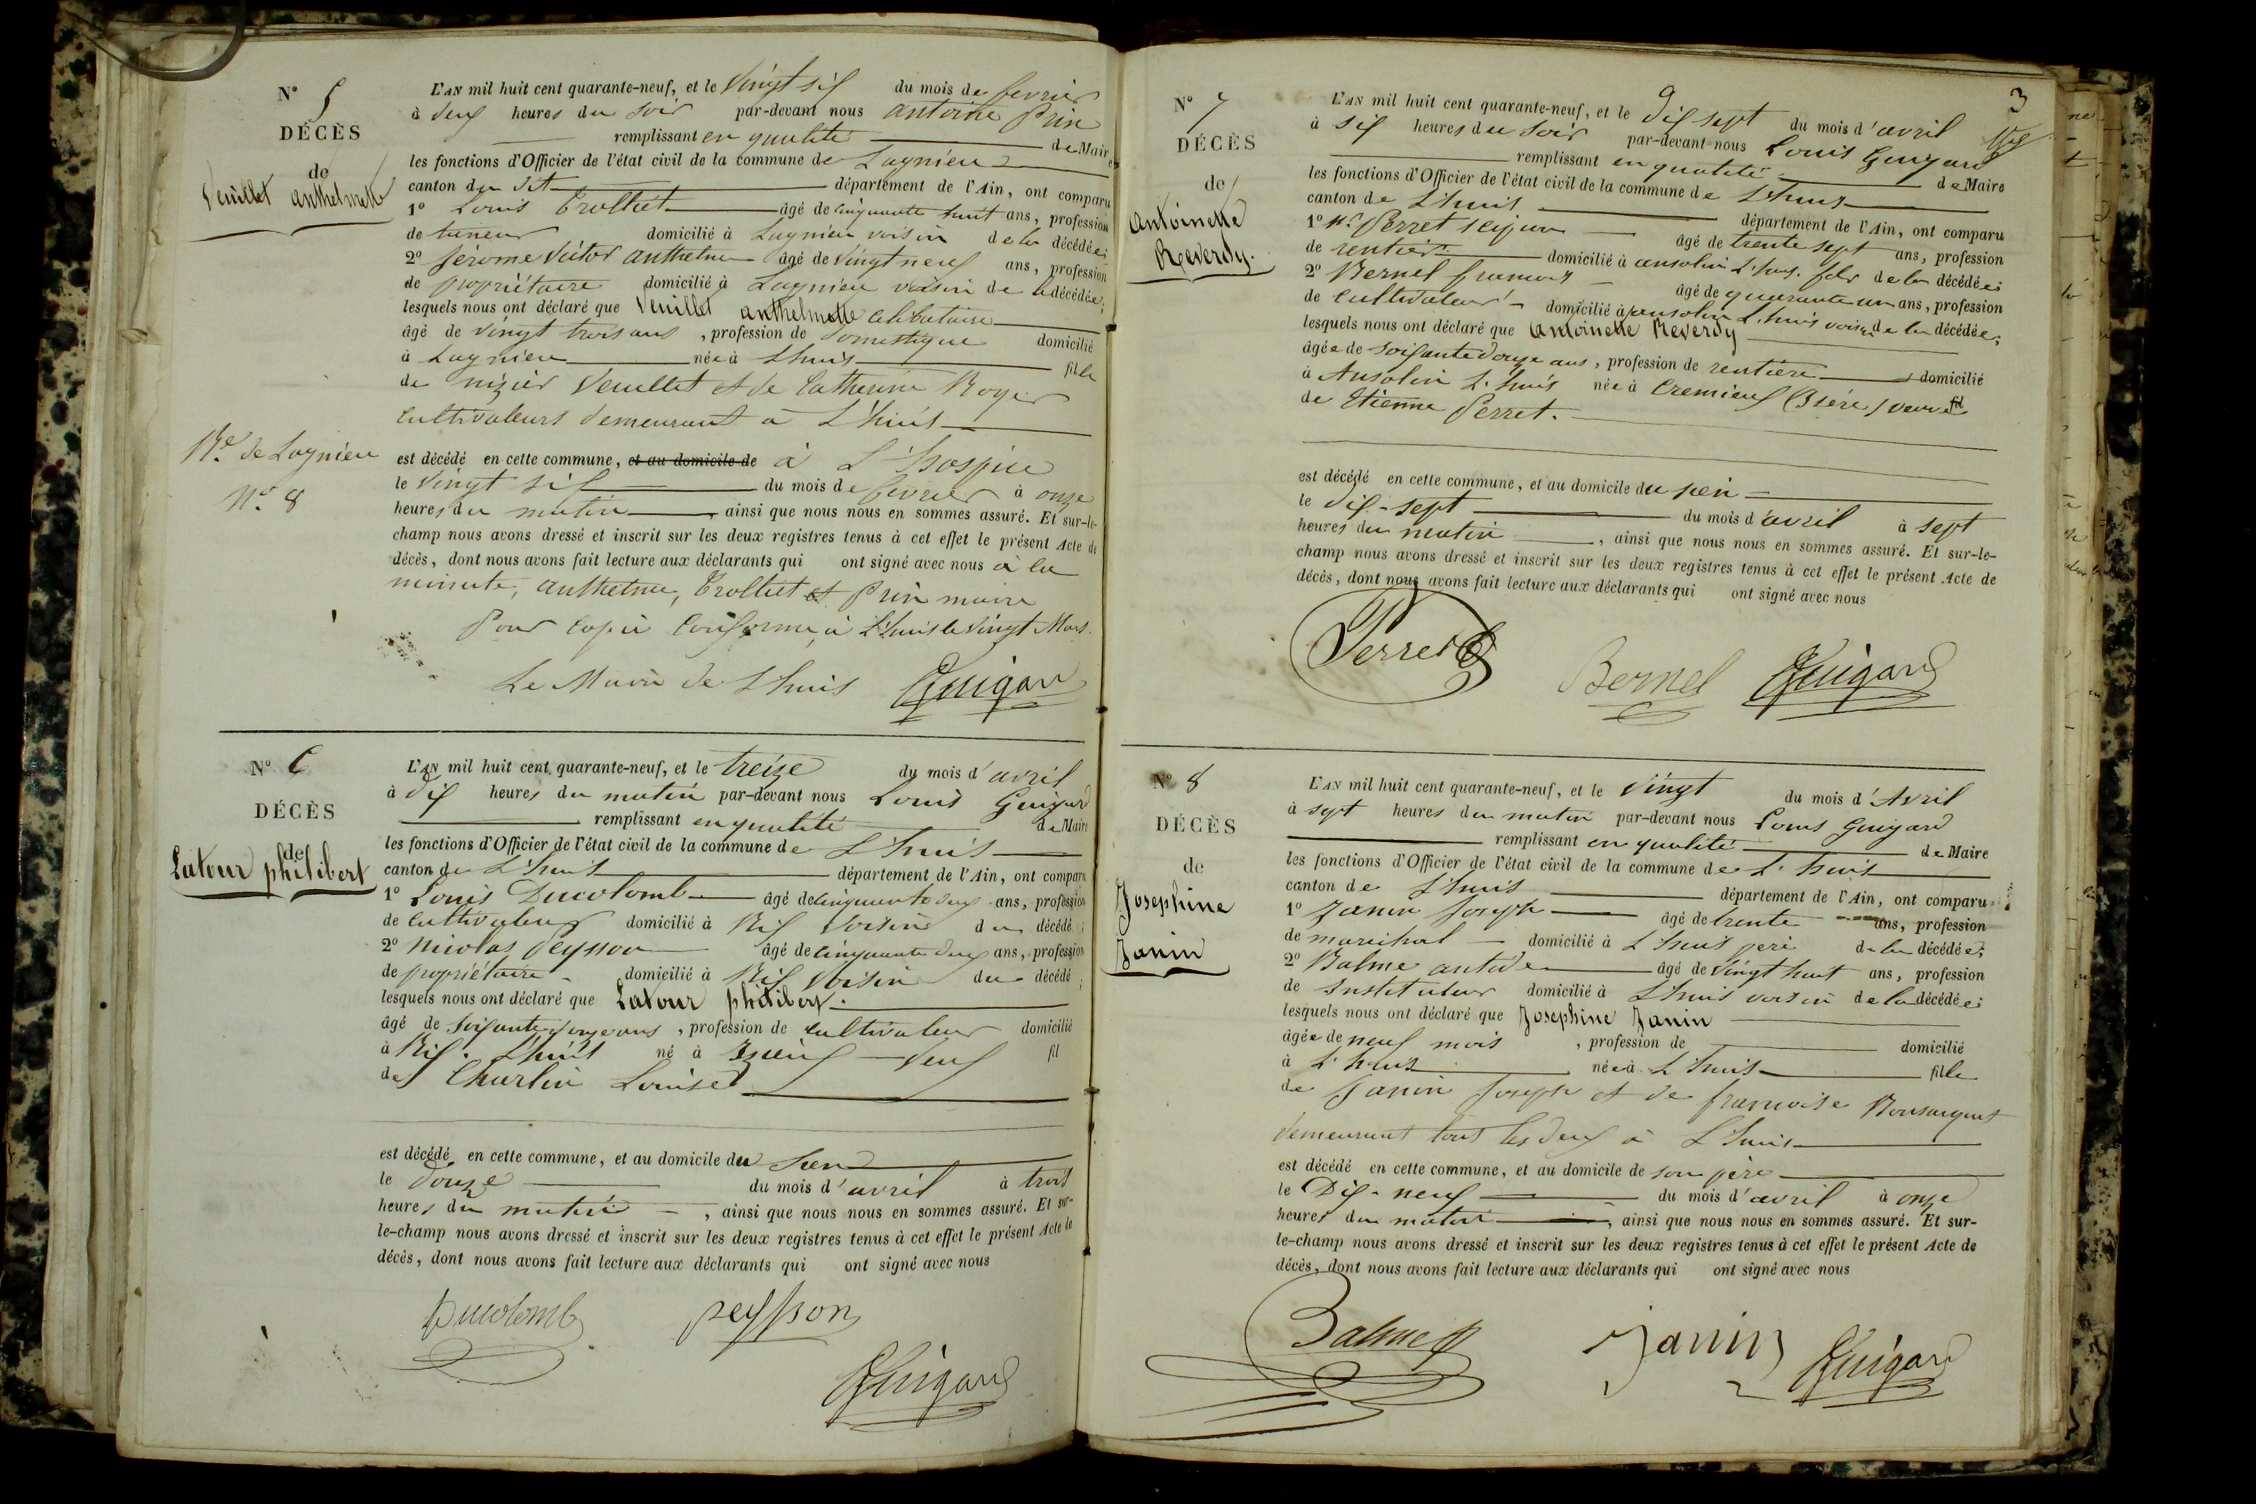 N° 5
DÉCÈS
de
Veuillet anthelmette
L'AN mil huit cent quarante-neuf, et le vingt six du mois de fevrier
à deux heures du soir par-devant nous antoine Prin
remplissant en qualité de Maire
les fonctions d'Officier de l'état civil de la commune de Lagnieu
canton du dit département de l'Ain, ont comparu
1° Louis Trolliet âgé de cinquante huit ans, profession
de taneur domicilié à Lagnieu voisin de la décédée;
2° Jérome Victor anthelme âgé de vingt neuf ans, profession
de propriétaire domicilié à Lagnieu voisin de la décédée;
lesquels nous ont déclaré que Veuillet anthelmette celibataire
âgé de vingt trois ans, profession de domestique domicilié
à Lagnieu née à Lhuis fille
de nizier Veuillet et de Catherine Roger
cultivateurs demeurant à L'huis
Re de Lagnieu
N° 8
est décédé en cette commune, et au domicile de à L'hospice
le vingt six du mois de fevrier à onze
heures du matin, ainsi que nous nous en sommes assuré. Et sur-le-
champ nous avons dressé et inscrit sur les deux registres tenus à cet effet le présent Acte de
décès, dont nous avons fait lecture aux déclarants qui ont signé avec nous à la
minute, anthelme, Trolliet et Prin maire
Pour copie conforme, à L'huis le vingt Mars.
Le Maire de Lhuis Guigard
N° 6
DÉCÈS
de
Latour philibert
L'AN mil huit cent quarante-neuf, et le treize du mois d'avril
à dix heures du matin par-devant nous Louis Guigard
remplissant en qualité de Maire
les fonctions d'Officier de l'état civil de la commune de L'huis
canton de L'huis département de l'Ain, ont comparu
1° Louis Ducolomb âgé de cinquante deux ans, profession
de cultivateur domicilié à Rix voisin du décédé;
2° nicolas Peysson âgé de cinquante deux ans, profession
de propriétaire domicilié à Rix voisin du décédé;
lesquels nous ont déclaré que Latour philibert.
âgé de soixante onze ans, profession de cultivateur domicilié
à Rix. L'huis né à veuf fil
de Charlin Louise
est décédé en cette commune, et au domicile du sien
le douze du mois d'avril à trois
heures du matin, ainsi que nous nous en sommes assuré. Et sur-
le-champ nous avons dressé et inscrit sur les deux registres tenus à cet effet le présent Acte de
décès, dont nous avons fait lecture aux déclarants qui ont signé avec nous
Ducolomb peysson
Guigard
3
N° 7
DÉCÈS
de
Antoinette
Reverdy.
L'AN mil huit cent quarante-neuf, et le Dix sept du mois d'avril
à six heures du soir par-devant nous Louis Guigard
remplissant en qualité de Maire
les fonctions d'Officier de l'état civil de la commune de L'huis
canton de L'huis département de l'Ain, ont comparu
1° Mr Perret âgé de trente sept ans, profession
de rentier domicilié à ansolin L'huis. fils de la décédée;
2° Bernel francois âgé de quarante un ans, profession
de cultivateur domicilié à ansolin L'huis voisin de la décédée;
lesquels nous ont déclaré que Antoinette Reverdy
âgée de soixante douze ans, profession de rentière domicilié
à Ansolin L'huis née à Cremieux (Isère) veuve fil
de Etienne Perret.
est décédé en cette commune, et au domicile du sien
le dix-sept du mois d'avril à sept
heures du matin, ainsi que nous nous en sommes assuré. Et sur-le-
champ nous avons dressé et inscrit sur les deux registres tenus à cet effet le présent Acte de
décès, dont nous avons fait lecture aux déclarants qui ont signé avec nous
Perret Bernel Guigard
N° 8
DÉCÈS
de
Josephine
Janin
L'AN mil huit cent quarante-neuf, et le vingt du mois d'Avril
à sept heures du matin par-devant nous Louis Guigard
remplissant en qualité de Maire
les fonctions d'Officier de l'état civil de la commune de L'huis
canton de L'huis département de l'Ain, ont comparu
1° Janin Joseph âgé de trente ans, profession
de marechal domicilié à L'huis père de la décédée;
2° Balme antide âgé de vingt huit ans, profession
de instituteur domicilié à Lhuis voisin de la décédée;
lesquels nous ont déclaré que Josephine Janin
âgée de neuf mois, profession de domicilié
à L'huis née à L'huis fille
de Janin Joseph et de francoise
demeurant tous les deux à L'huis
est décédé en cette commune, et au domicile de son père
le Dix-neuf du mois d'avril à onze
heures du matin, ainsi que nous nous en sommes assuré. Et sur-
le-champ nous avons dressé et inscrit sur les deux registres tenus à cet effet le présent Acte de
décès, dont nous avons fait lecture aux déclarants qui ont signé avec nous
Balme Janin Guigard